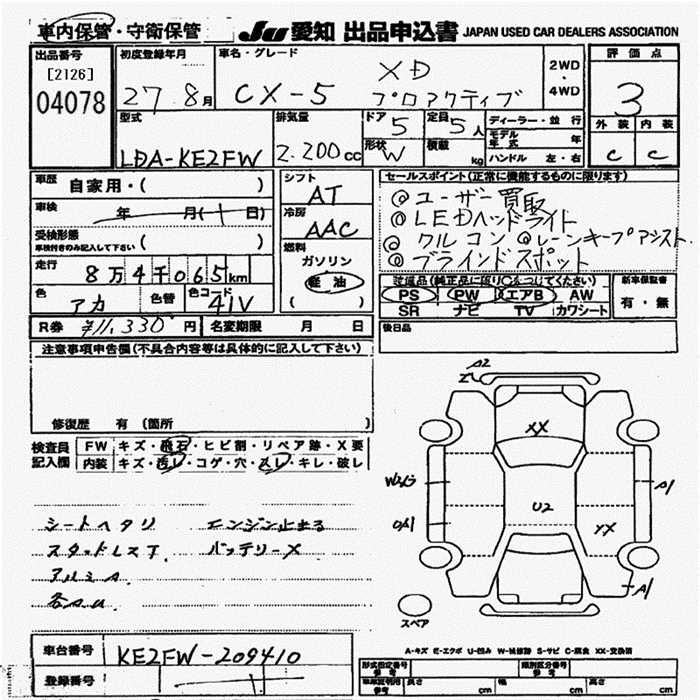 車内保管・守衛保管
JU 愛知 出品申込書 JAPAN USED CAR DEALERS ASSOCIATION
出品番号
[2126]
04078
初度登録年月
27年 8月
車名・グレード
CX-5
XD
プロアクティブ
2WD
・
4WD
評価点
3
外装 内装
C C
型式
LDA-KE2FW
排気量
2.200cc
ドア
5
定員
5人
形状
W
積載
kg
ディーラー・並行
モデル年式 年
ハンドル 左・右
車歴
自家用・( )
車検
年 月( 日)
受検形態
車検付きのみ記入して下さい ( )
走行
8万4千065km
色
アカ
色替
色コード
41V
シフト
AT
冷房
AAC
燃料
ガソリン
軽油
( )
セールスポイント(正常に機能するものに限ります)
◎ユーザー買取
◎LEDヘッドライト
◎クルコン ◎レーンキープアシスト
◎ブラインドスポット
装備品(純正品に限り○をつけてください)
PS PW エアB AW
SR ナビ TV カワシート
新車保証書
有・無
R券 ¥11,330円
名変期限 月 日
後日品
注意事項申告欄(不具合内容等は具体的に記入して下さい)
修復歴 有 (箇所 )
検査員記入欄
FW キズ・飛石・ヒビ割・リペア跡・X要
内装 キズ・汚レ・コゲ・穴・スレ・キレ・破レ
シートヘタリ エンジン止まる
スタッドレスT バッテリーX
アルミA
各AU
A2
XX
W2G
U2
A1
XX
A1
スペア
A-キズ E-エクボ U-凹み W-補修跡 S-サビ C-腐食 XX-交換済
車台番号
KE2FW-209410
登録番号
形式指定番号 参考
類別区分番号 参考
車車証明用 参考
長さ cm 幅 cm 高さ cm